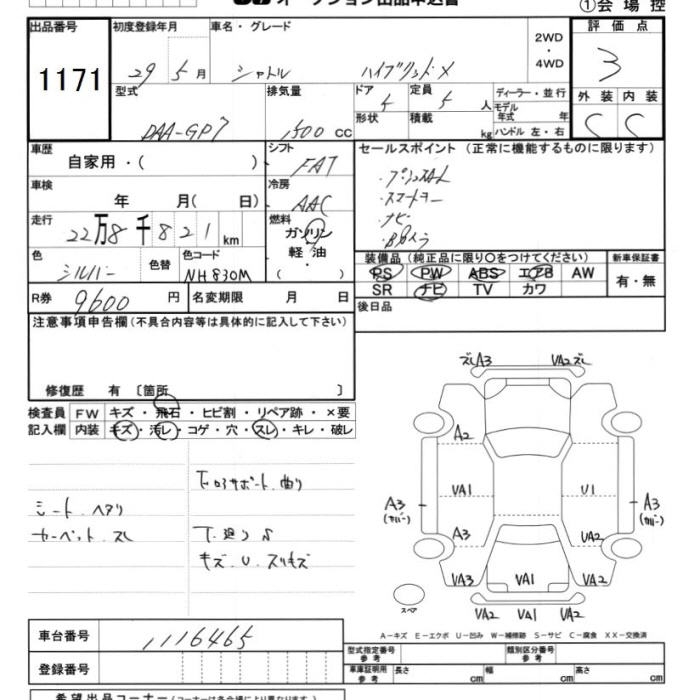 オークション出品申込書
①会場控
出品番号 初度登録年月 車名・グレード 2WD・4WD 評価点
1171 29年5月 シャトル ハイブリッド・X 3
型式 排気量 ドア 定員 ディーラー・並行 外装 内装
DAA-GP7 1500 cc 5 5人 モデル年式 年 C C
形状 積載 kg ハンドル 左・右
車歴 シフト セールスポイント (正常に機能するものに限ります)
自家用・( ) FAT
・スマートキー
車検 冷房
年 月( 日) AAC ・ナビ
走行 燃料 ・Bカメラ
22万8千821km ガソリン
軽油
( )
色 色替 色コード 装備品 (純正品に限り○をつけてください) 新車保証書
シルバー NH830M PS PW ABS エアB AW 有・無
SR ナビ TV カワ
R券 9600円 名変期限 月 日 後日品
注意事項申告欄(不具合内容等は具体的に記入して下さい)
修復歴 有 〔箇所 〕
検査員 FW キズ・飛石・ヒビ割・リペア跡・×要
記入欄 内装 キズ・汚レ・コゲ・穴・スレ・キレ・破レ
下回サポート 曲り
シート ヘタリ
カーペット スレ
下廻り S
キズ U スリキズ
スレA3 VA2スレ
A2
VA1 U1
A3 (カバー) A3 (カバー)
A3 UA2
VA3 VA1 VA2
スペア
VA2 VA1 VA2
A-キズ E-エクボ U-凹み W-補修跡 S-サビ C-腐食 XX-交換済
車台番号 1116465
型式指定番号 参考 類別区分番号 参考
登録番号 車庫証明用 参考 長さ cm 幅 cm 高さ cm
希望出品コーナー (コーナーは各会場により異なります)